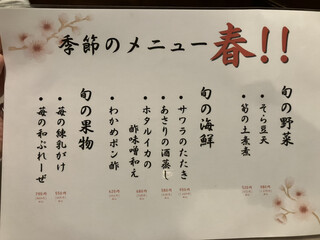 季節のメニュー 春!!
旬の野菜
• そら豆天
• 筍の土煮煮
旬の海鮮
• サワラのたたき
• あさりの酒蒸し
• ホタルイカの
酢味噌和え
• わかめポン酢
旬の果物
• 苺の練乳がけ
• 苺の和ぶれーぜ